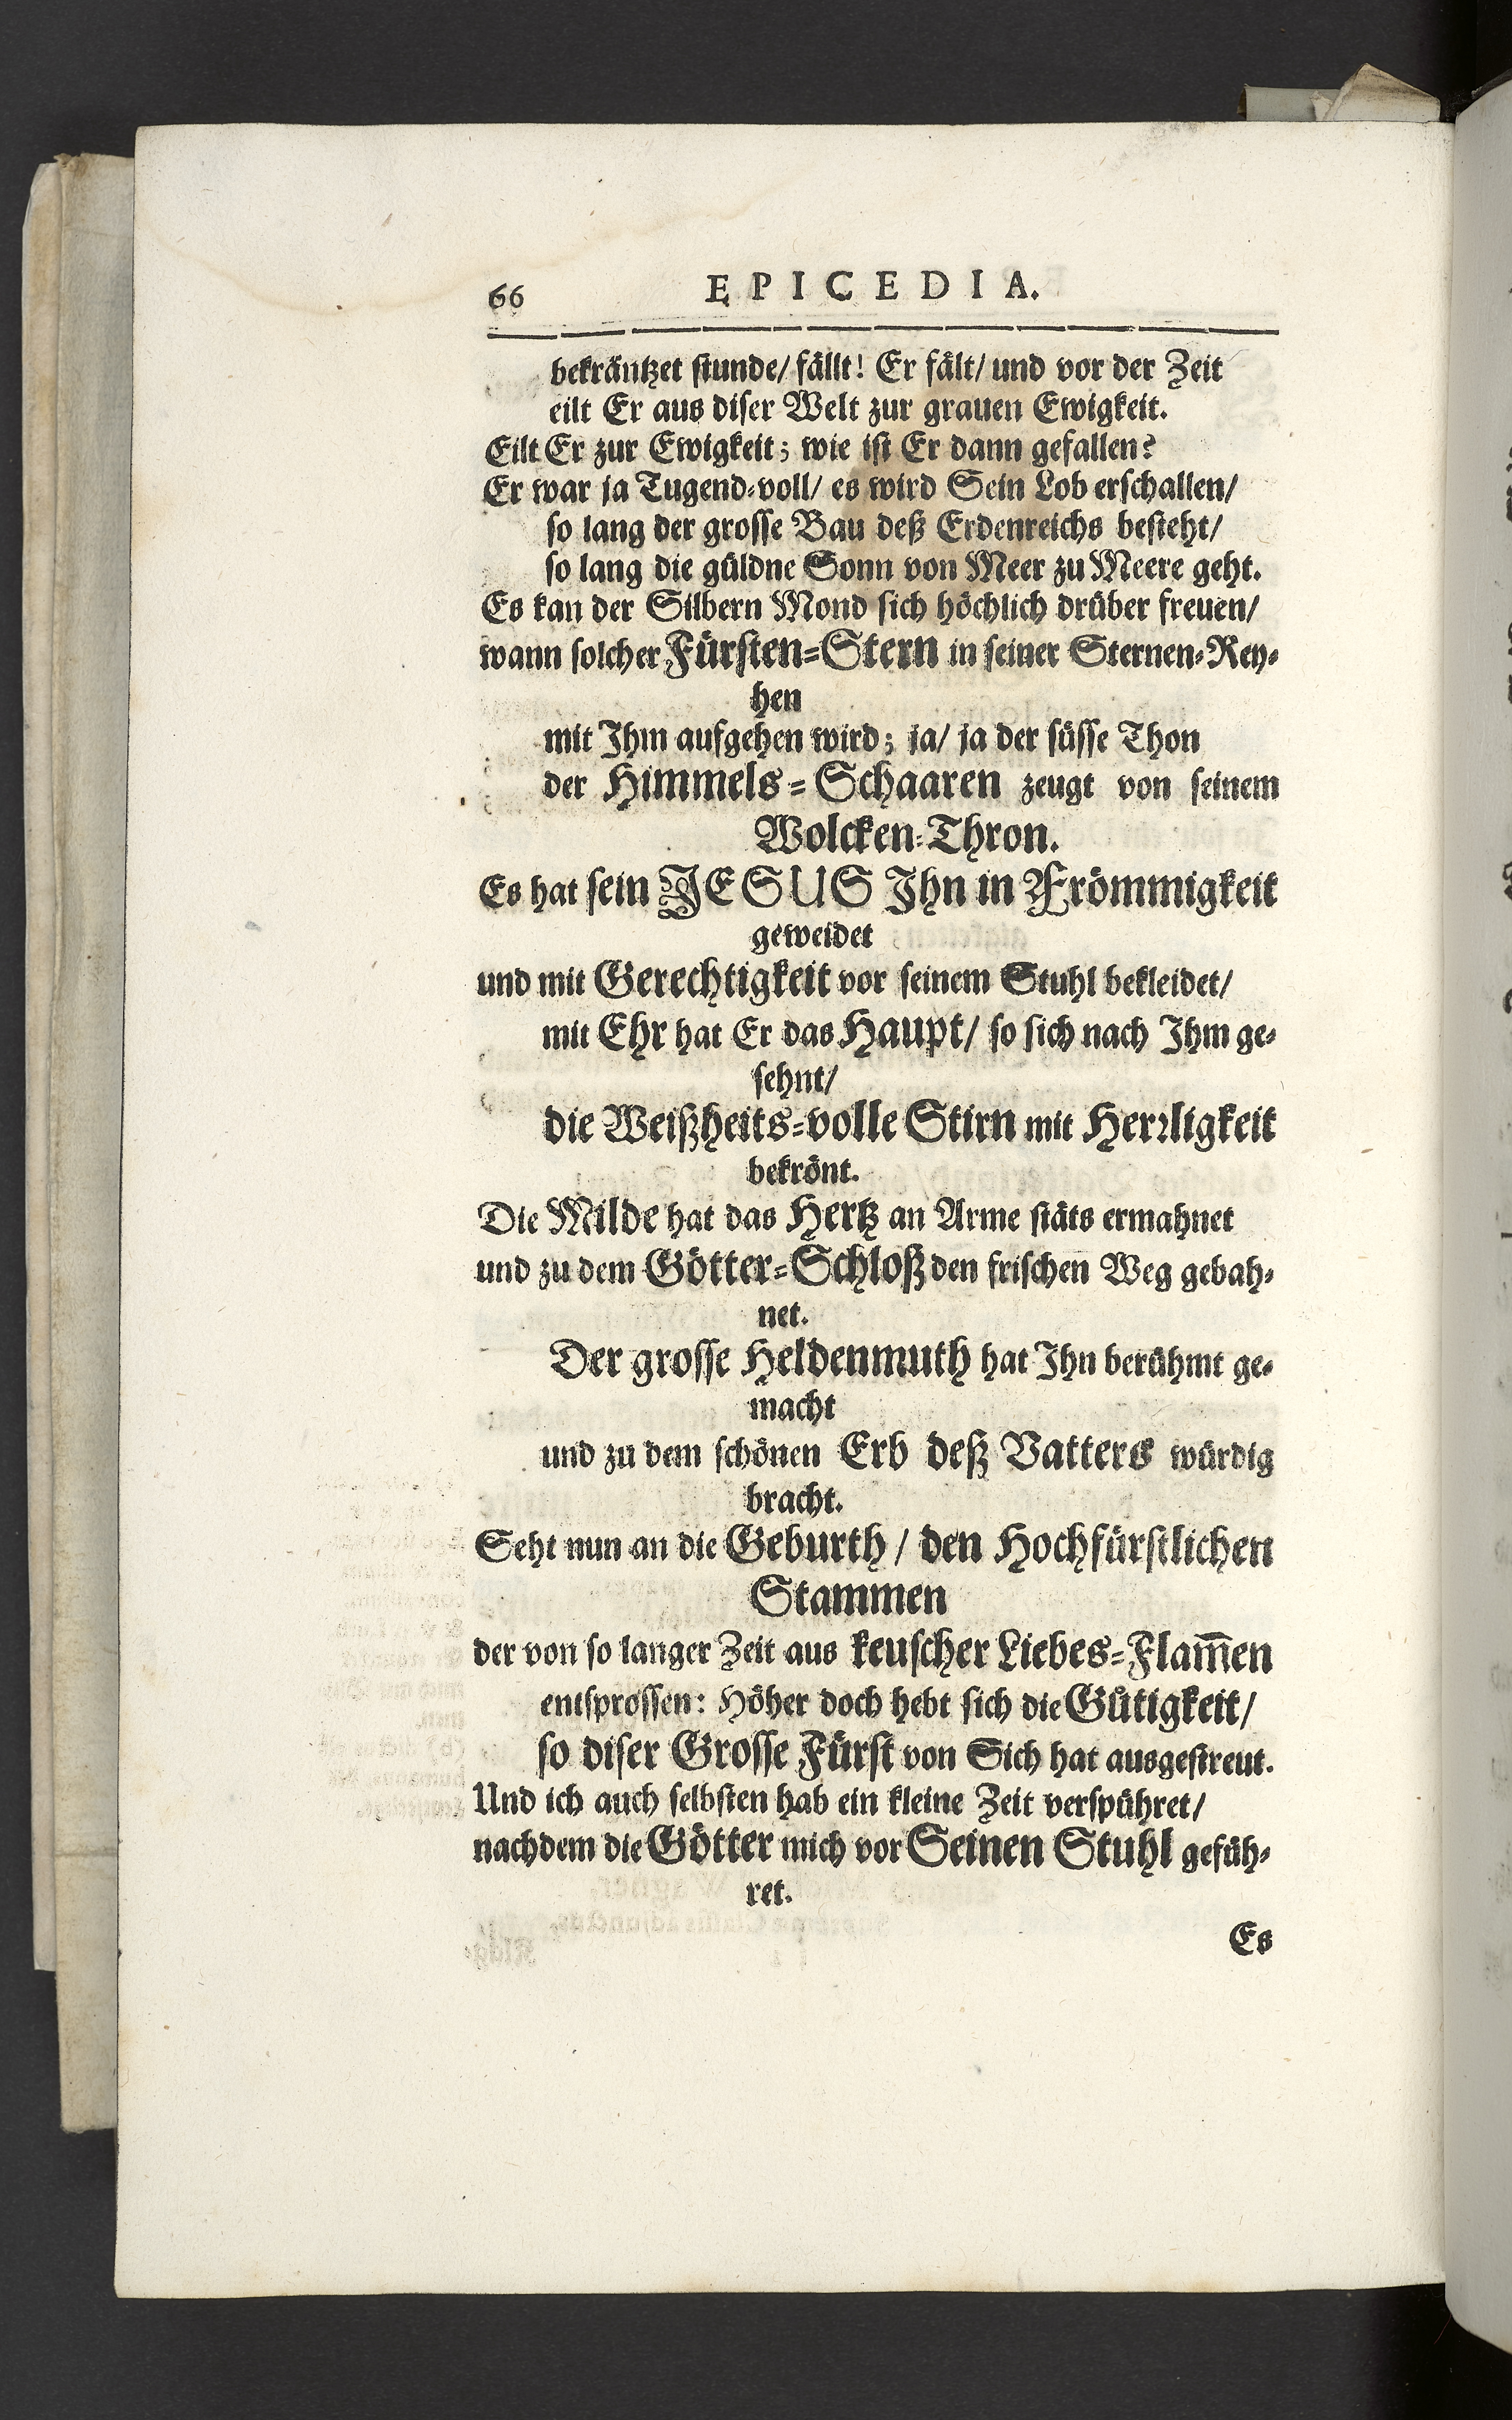 66 EPICEDIA.
bekräntzet stunde/ fällt! Er fält/ und vor der Zeit
eilt Er aus diser Welt zur grauen Ewigkeit.
Eilt Er zur Ewigkeit; wie ist Er dann gefallen?
Er war ja Tugend-voll/ es wird Sein Lob erschallen/
so lang der grosse Bau deß Erdenreichs besteht/
so lang die güldne Sonn von Meer zu Meere geht.
Es kan der Silbern Mond sich höchlich drüber freuen/
wann solcher Fürsten-Stern in seiner Sternen-Rey-
hen
mit Ihm aufgehen wird; ja/ ja der süsse Thon
der Himmels-Schaaren zeugt von seinem
Wolcken-Thron.
Es hat sein JESUS Ihn in Frömmigkeit
geweidet
und mit Gerechtigkeit vor seinem Stuhl bekleidet/
mit Ehr hat Er das Haupt/ so sich nach Ihm ge-
sehnt/
die Weißheits-volle Stirn mit Herꝛligkeit
bekrönt.
Die Milde hat das Hertz an Arme stäts ermahnet
und zu dem Götter-Schloß den frischen Weg gebah-
net.
Der grosse Heldenmuth hat Ihn berühmt ge-
macht
und zu dem schönen Erb deß Vatters würdig
bracht.
Seht nun an die Geburth/ den Hochfürstlichen
Stammen
der von so langer Zeit aus keuscher Liebes-Flam̅en
entsprossen: Höher doch hebt sich die Gütigkeit/
so diser Grosse Fürst von Sich hat ausgestreut.
Und ich auch selbsten hab ein kleine Zeit verspühret/
nachdem die Götter mich vor Seinen Stuhl gefüh-
ret.
Es